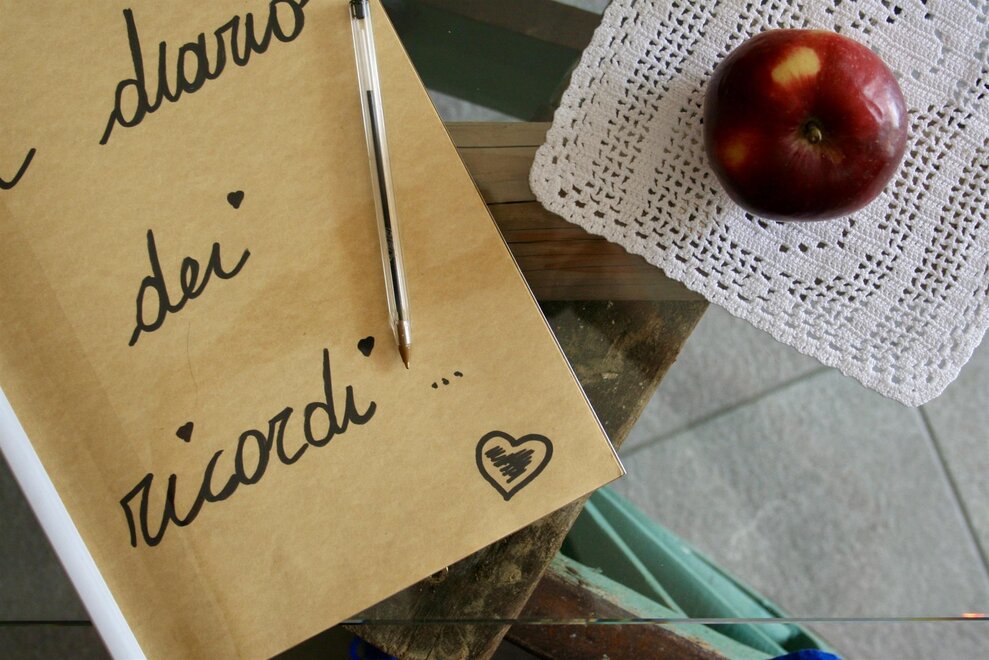 diario
dei
ricordi ...